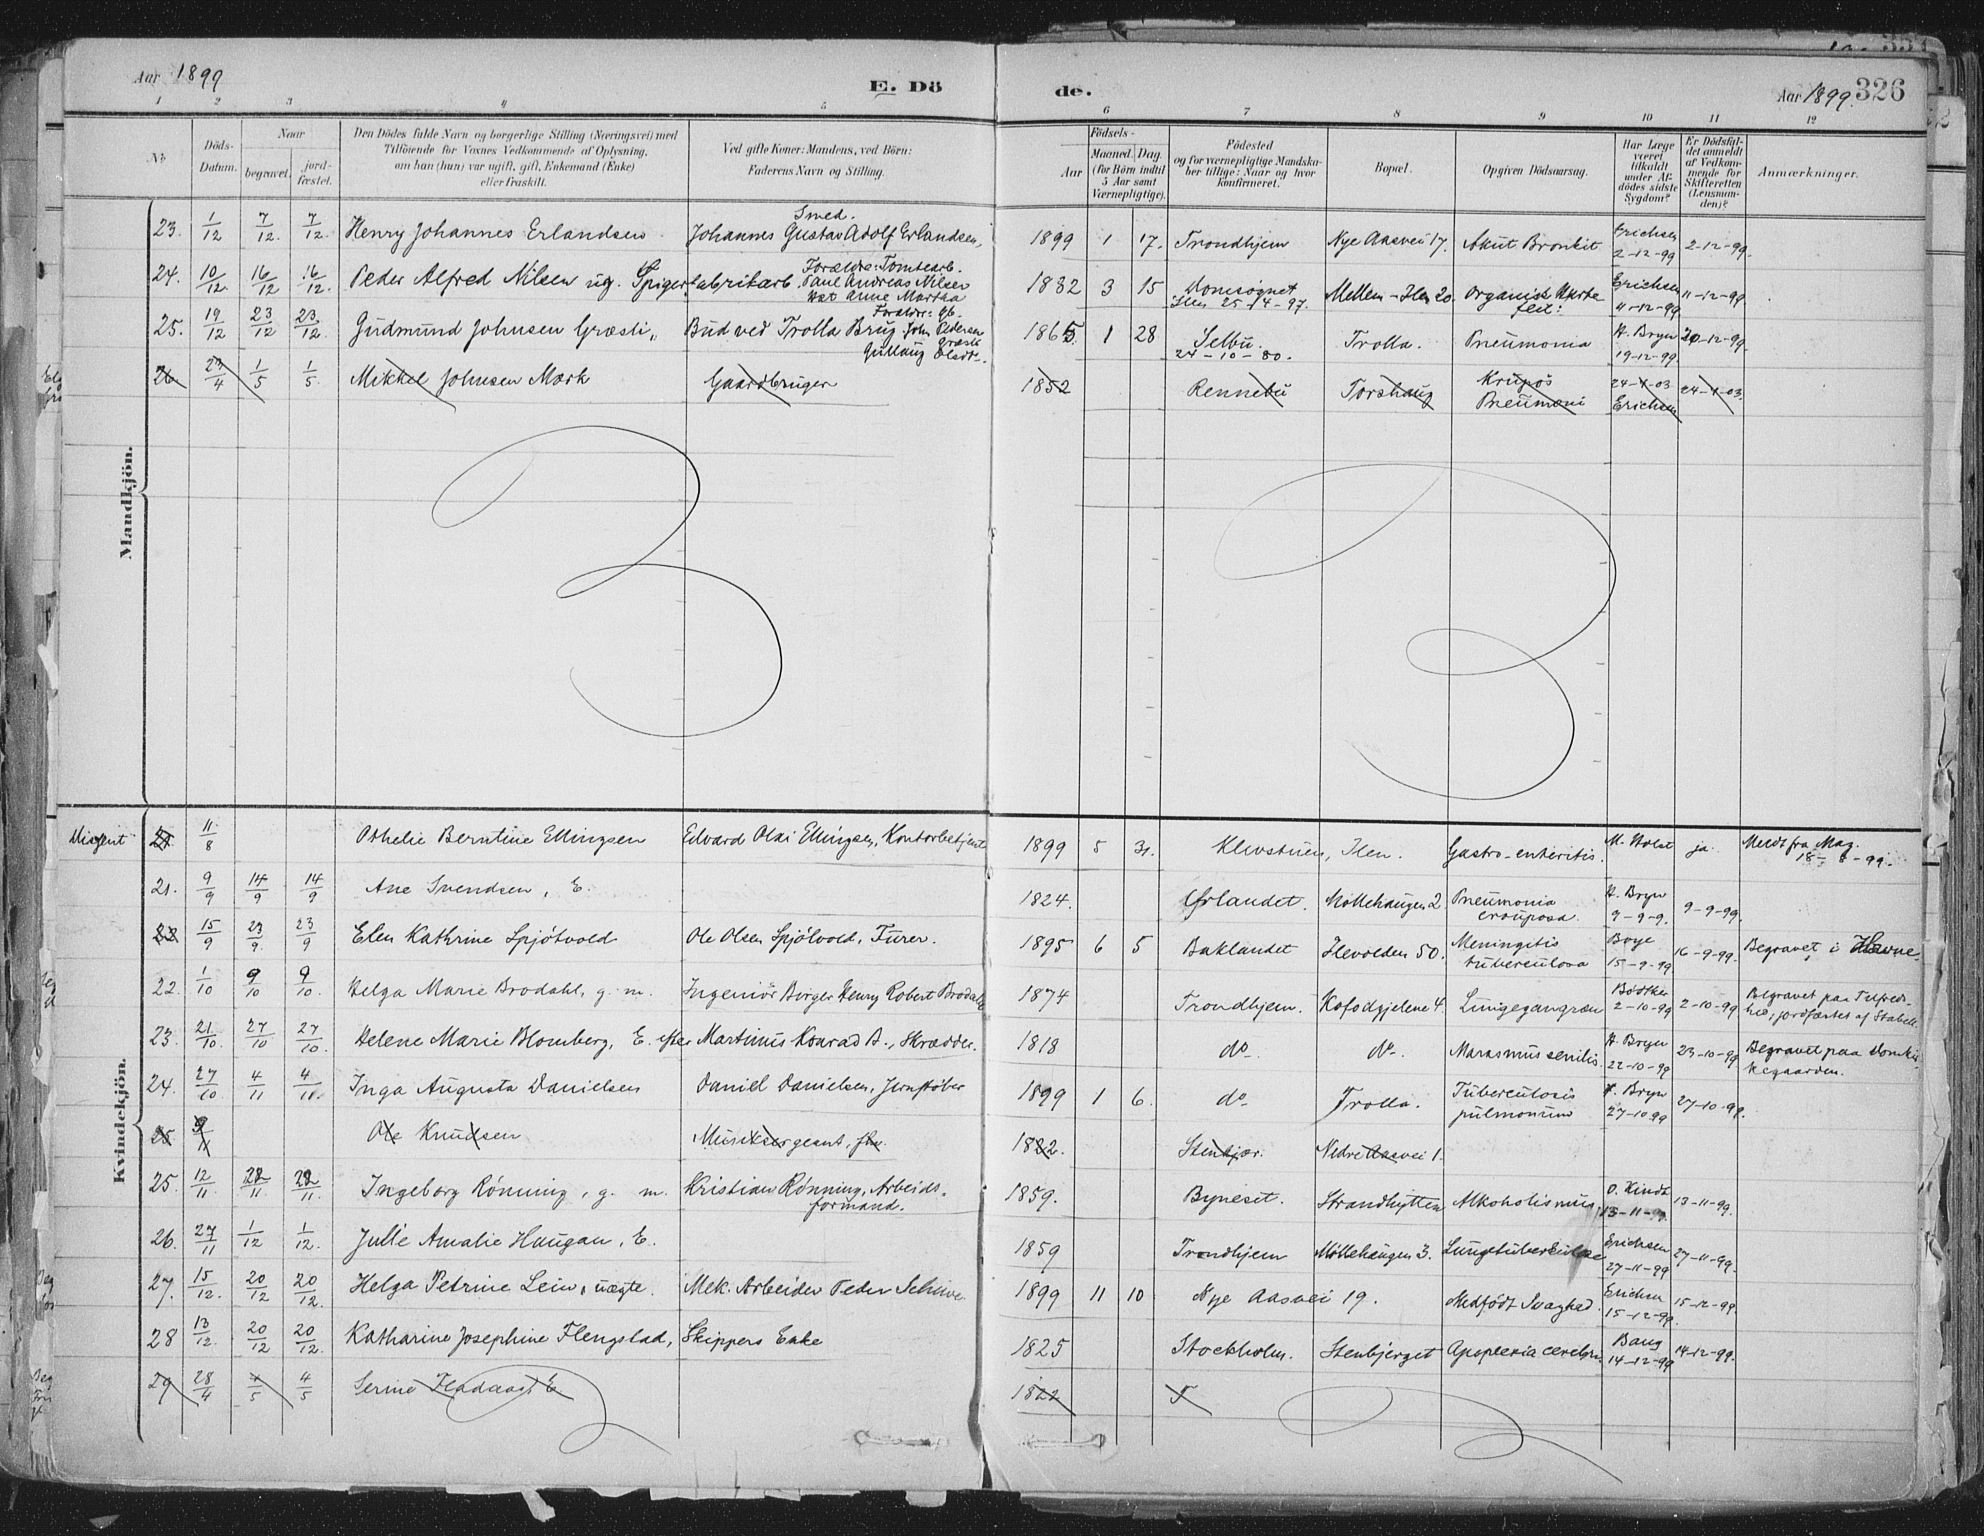 Aar 1899
E. Dö
de.
Aar 1899. 326
1 2 3 4 5 6 7 8 9 10 11 12
No
Döds-Datum.
Naar
begravet.
jord-fæstet.
Den Dödes fulde Navn og borgerlige Stilling (Næringsvei) med
Tilföiende for Voxnes Vedkommende af Oplysning,
om han (hun) var ugift, gift, Enkemand (Enke)
eller fraskilt.
Ved gifte Koner: Mandens, ved Börn:
Faderens Navn og Stilling.
Födsels-
Aar
Maaned. Dag.
(for Börn indtil
5 Aar samt
Værnepligtige).
Födested
og for værnepligtige Mandska-
ber tillige: Naar og hvor
konfirmeret.
Bopæl.
Opgiven Dödsaarsag.
Har Læge
været
tilkaldt
under Af-
dödes sidste
Sygdom?
Er Dödsfal-
det anmeldt
af Vedkom-
mende for
Skifteretten
(Lensman-
den)?
Anmærkninger.
Mandkjön.
23. 1/12 7/12. 7/12. Henry Johannes Erlandsen Smed. Johannes Gustav Adolf Erlandsen, 1899 1 17. Trondhjem Nye Aasvei 17. Akut Bronkit Erichsen 2-12-99 2-12-99.
24. 10/12 16/12 16/12. Peder Alfred Nilsen ug. Spigerfabrikarb. Forældre: Tomtearb. Paul Andreas Nilsen Anne Martha 1882 3 15 Domsognet Ilen 25-4-97. Mellem-Ilen 20. Organisk Hjerte feil: Erichsen 11-12-99 11-12-99
25. 19/12 23/12 23/12 Gudmund Johnsen Græsli, Bud ved Trolla Brug Forældre: John Pedersen Græsli Gullaug Olsdt. 1865. 1 28 Selbu. 24-10-80. Trolla. Pneumonia H. Bryn 19-12-99. 20-12-99.
26 29/4 1/5 1/5. Mikkel Johnsen Mærk Gaardbruger 1852 Rennebu Torshaug Krupös Pneumoni 24-4-03 Erichsen 24-4-03.
Kvindekjön.
21 11/8 Othelie Berntine Ellingsen Edvard Olai Ellingsen, Kontorbetjent 1899 5 31. Klevstuen, Ilen. Gastro-enteritis. M. Holst ja. Meldt fra Mag. 18-8-99.
21. 9/9 14/9 14/9 Ane Svendsen, E. 1824. Ørlandet. Möllehaugen 2. Pneumonia crouposa. H. Bryn 9-9-9. 9-9-99.
22 15/9 23/9. 23/9 Elen Kathrine Spjötvold Ole Olsen Spjötvold, Furer. 1895 6 5 Baklandet Ilevolden 50. Meningitis tuberculosa Boye 15-9-99 16-9-99. Begravet i Havne.
22. 1/10 9/10 9/10. Helga Marie Brodahl, g. m. Ingeniör Birger Henry Robert Brodahl 1874 Trondhjem. Kofodgjelene 4. Lungegangræn Bödtker 2-10-99 2-10-99 Begravet paa Tilfreds-hed, jordfæstet af Stabell.
23. 21/10. 27/10 27/10. Helene Marie Blomberg, E. efter Martinus Konrad B., Skrædder. 1818 do. do. Marasmus senilis. H. Bryn 22-10-99 23-10-99 Begravet paa Domkir-kegaarden.
24. 27/10 4/11 4/11. Inga Augusta Danielsen Daniel Danielsen, Jernstöber 1899 1 6. do Trolla. Tuberculosis pulmonum H. Bryn 27-10-99 27-10-99.
25 9/11 Ole Knudsen Musiksergeant, 1822. Stenkjær. Nedre Aasvei 1.
25. 12/11. 22/11. 22/11. Ingeborg Rönning, g. m. Kristian Rönning, Arbeids-formand. 1859. Byneset. Strandhytten Alkoholismus O. Kindt 13-11-99. 13-11-99.
26. 27/11 1/12 1/12. Julie Amalie Haugan, E. 1859 Trondhjem Möllehaugen 3. Lungetuberkulose Erichsen 27-11-99 27-11-99.
27. 15/12. 20/12 20/12. Helga Petrine Lein, uægte. Mek. Arbeider Peder Schive 1899 11 10 Nye Aasvei 19. Medfödt Svaghed. Erichsen 15-12-99. 15-12-99.
28 13/12 20/12 20/12. Katharine Josephine Flengstad, Skippers Enke 1825 Stockholm. Stenbjerget Apoplexia cerebri Bang 14-12-99 14-12-99.
29 28/4 4/5 4/5 Serine E 1822 T